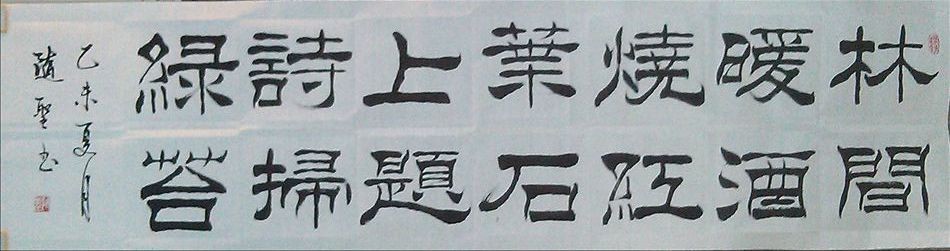 林間
暖酒
燒紅
葉石
上題
詩掃
綠苔
乙未夏月
隨聖书